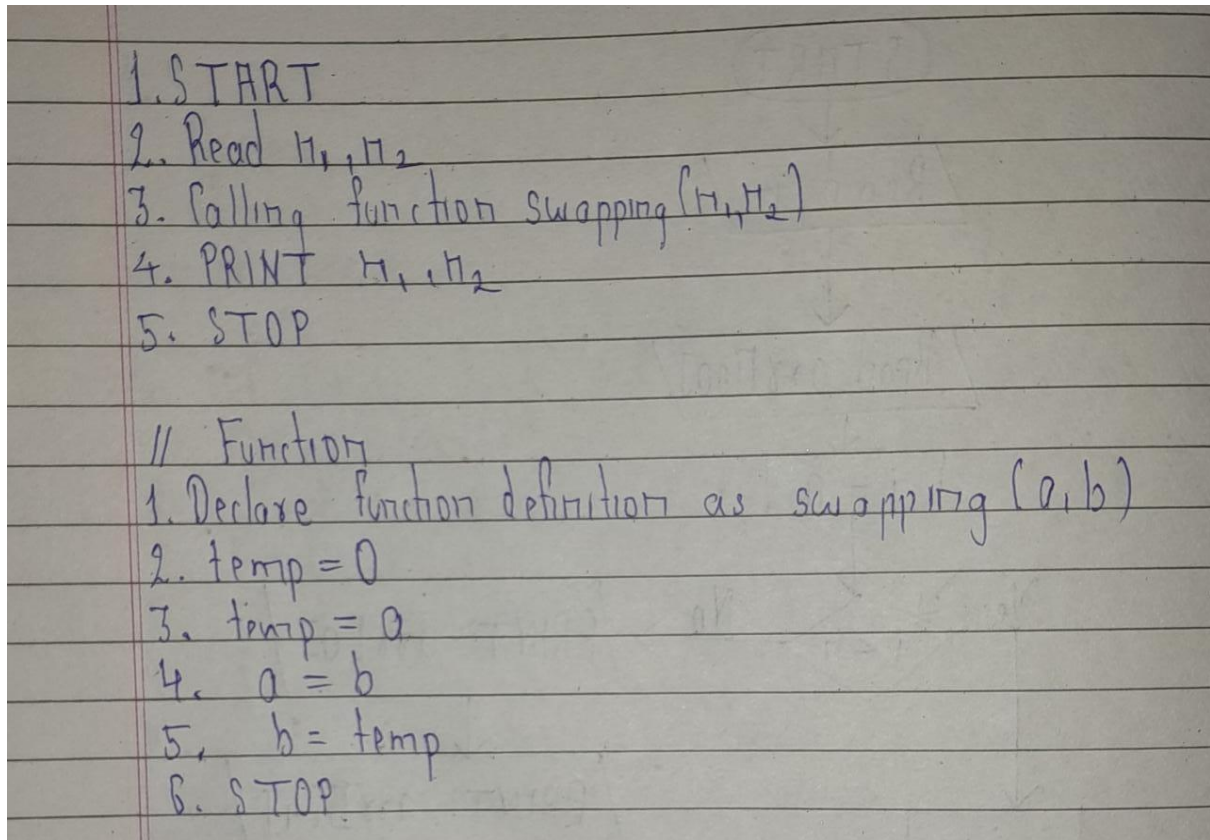 1. START
2. Read n₁, n₂
3. Calling function swapping (n₁, n₂)
4. PRINT n₁, n₂
5. STOP
// Function
1. Declare function definition as swapping (a, b)
2. temp = 0
3. temp = a
4. a = b
5. b = temp
6. STOP